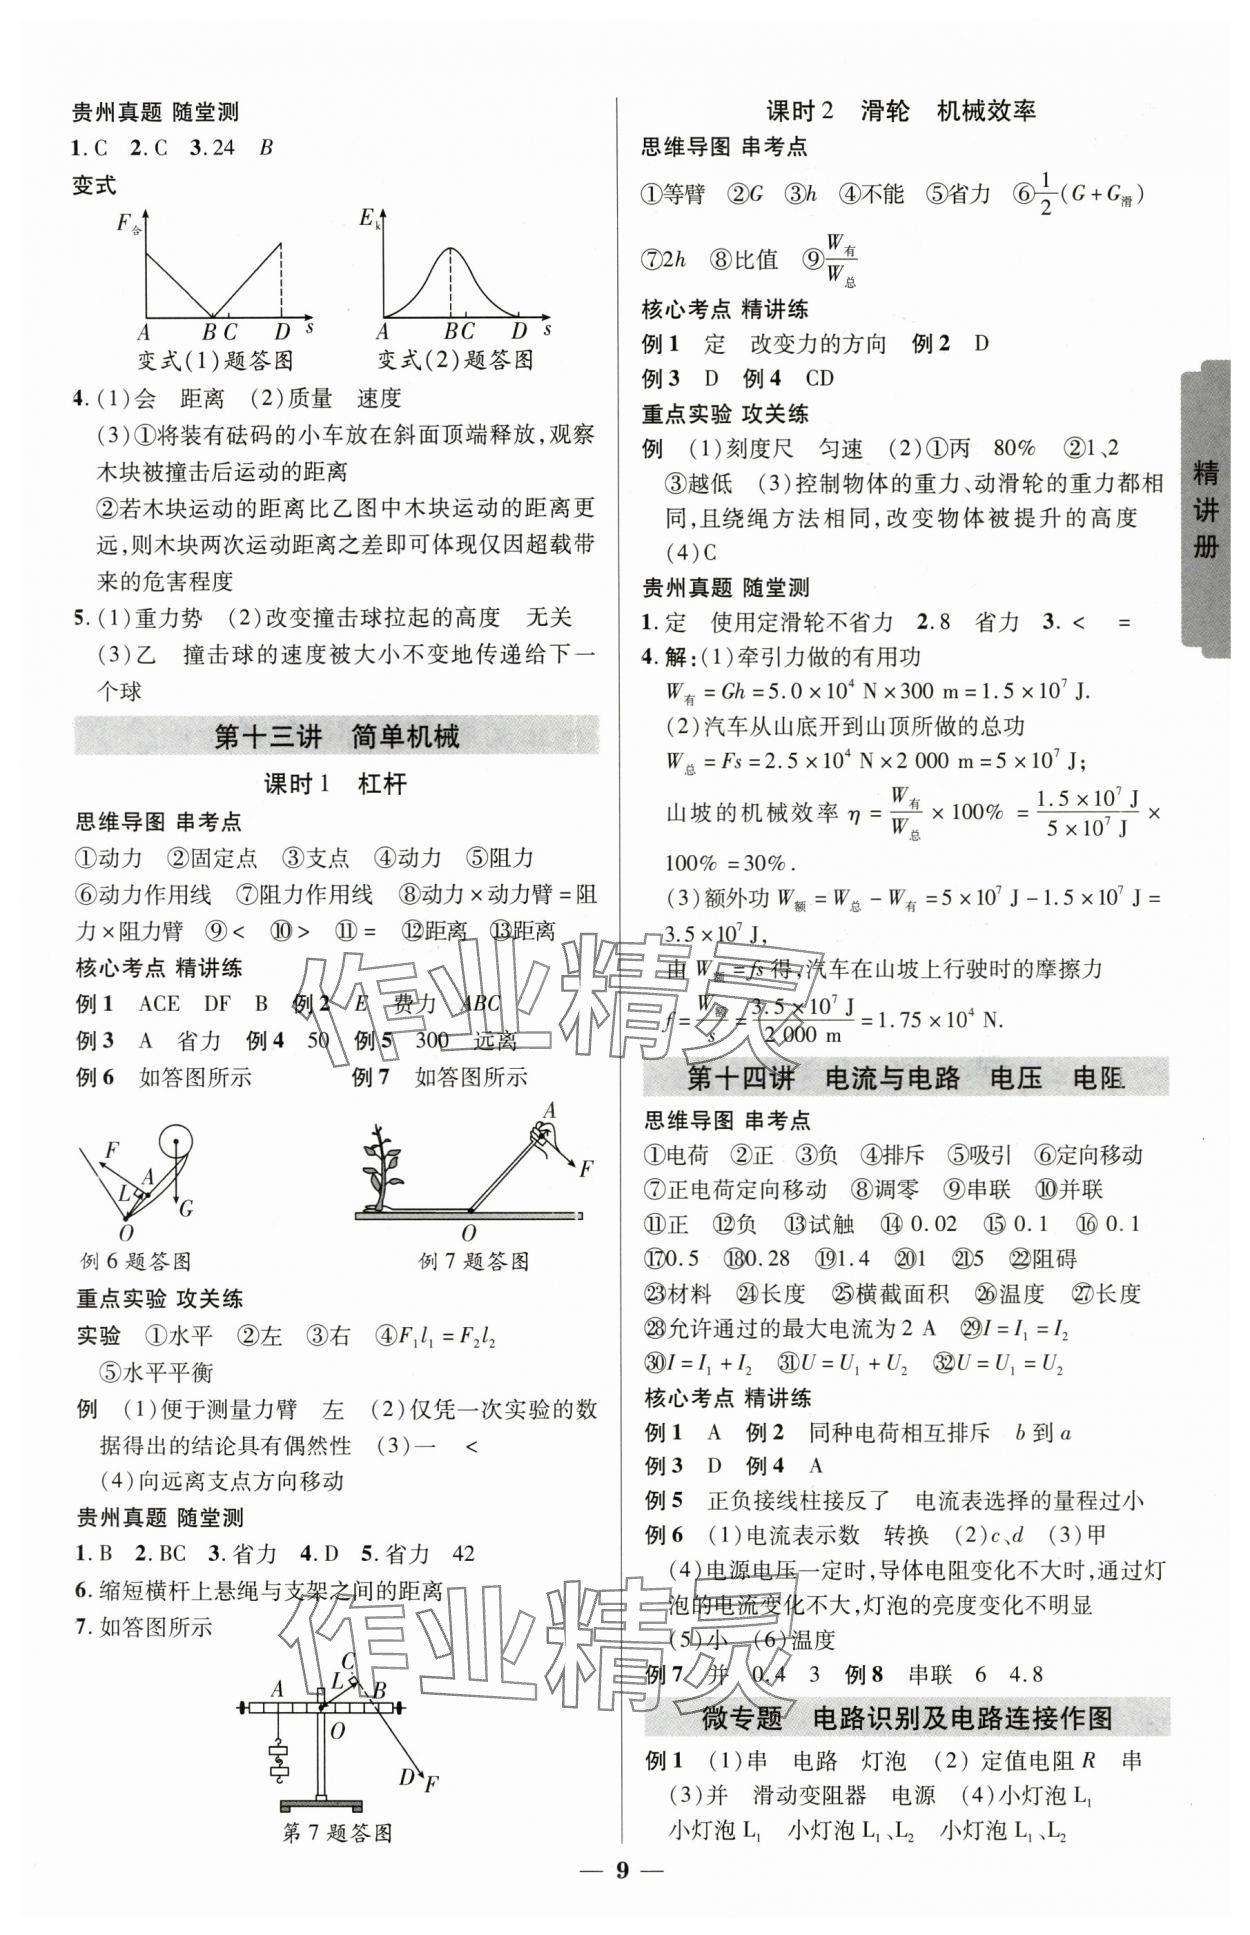 贵州真题 随堂测
1. C  2. C  3. 24  B
变式
F合
A  B  C  D  s
变式(1)题答图
Ek
A  B  C  D  s
变式(2)题答图
4. (1)会  距离  (2)质量  速度
(3)①将装有砝码的小车放在斜面顶端释放,观察
木块被撞击后运动的距离
②若木块运动的距离比乙图中木块运动的距离更
远,则木块两次运动距离之差即可体现仅因超载带
来的危害程度
5. (1)重力势  (2)改变撞击球拉起的高度  无关
(3)乙  撞击球的速度被大小不变地传递给下一
个球
第十三讲  简单机械
课时1  杠杆
思维导图 串考点
①动力  ②固定点  ③支点  ④动力  ⑤阻力
⑥动力作用线  ⑦阻力作用线  ⑧动力×动力臂=阻
力×阻力臂  ⑨<  ⑩>  ⑪=  ⑫距离  ⑬距离
核心考点 精讲练
例1  ACE  DF  B  例2  E  费力  ABC
例3  A  省力  例4  50  例5  300  远离
例6  如答图所示  例7  如答图所示
F  A  L  G  O
例6题答图
A  F  O
例7题答图
重点实验 攻关练
实验  ①水平  ②左  ③右  ④F₁l₁=F₂l₂
⑤水平平衡
例  (1)便于测量力臂  左  (2)仅凭一次实验的数
据得出的结论具有偶然性  (3)一  <
(4)向远离支点方向移动
贵州真题 随堂测
1. B  2. BC  3. 省力  4. D  5. 省力  42
6. 缩短横杆上悬绳与支架之间的距离
7. 如答图所示
A  L  C  B  O  D  F
第7题答图
课时2  滑轮  机械效率
思维导图 串考点
①等臂  ②G  ③h  ④不能  ⑤省力  ⑥1/2(G+G滑)
⑦2h  ⑧比值  ⑨W有/W总
核心考点 精讲练
例1  定  改变力的方向  例2  D
例3  D  例4  CD
重点实验 攻关练
例  (1)刻度尺  匀速  (2)①丙  80%  ②1、2
③越低  (3)控制物体的重力、动滑轮的重力都相
同,且绕绳方法相同,改变物体被提升的高度
(4)C
贵州真题 随堂测
1. 定  使用定滑轮不省力  2. 8  省力  3. <  =
4. 解:(1)牵引力做的有用功
W有=Gh=5.0×10⁴ N×300 m=1.5×10⁷ J.
(2)汽车从山底开到山顶所做的总功
W总=Fs=2.5×10⁴ N×2 000 m=5×10⁷ J;
山坡的机械效率 η=W有/W总×100%=1.5×10⁷ J/5×10⁷ J×
100%=30%.
(3)额外功 W额=W总-W有=5×10⁷ J-1.5×10⁷ J=
3.5×10⁷ J,
由 W额=fs 得,汽车在山坡上行驶时的摩擦力
f=W额/s=3.5×10⁷ J/2 000 m=1.75×10⁴ N.
第十四讲  电流与电路  电压  电阻
思维导图 串考点
①电荷  ②正  ③负  ④排斥  ⑤吸引  ⑥定向移动
⑦正电荷定向移动  ⑧调零  ⑨串联  ⑩并联
⑪正  ⑫负  ⑬试触  ⑭0.02  ⑮0.1  ⑯0.1
⑰0.5  ⑱0.28  ⑲1.4  ⑳1  ㉑5  ㉒阻碍
㉓材料  ㉔长度  ㉕横截面积  ㉖温度  ㉗长度
㉘允许通过的最大电流为2 A  ㉙I=I₁=I₂
㉚I=I₁+I₂  ㉛U=U₁+U₂  ㉜U=U₁=U₂
核心考点 精讲练
例1  A  例2  同种电荷相互排斥  b到a
例3  D  例4  A
例5  正负接线柱接反了  电流表选择的量程过小
例6  (1)电流表示数  转换  (2)c、d  (3)甲
(4)电源电压一定时,导体电阻变化不大时,通过灯
泡的电流变化不大,灯泡的亮度变化不明显
(5)小  (6)温度
例7  并  0.4  3  例8  串联  6  4.8
微专题  电路识别及电路连接作图
例1  (1)串  电路  灯泡  (2)定值电阻R  串
(3)并  滑动变阻器  电源  (4)小灯泡L₁
小灯泡L₁  小灯泡L₁、L₂  小灯泡L₁、L₂
精讲册
作业精灵
作业精灵
— 9 —